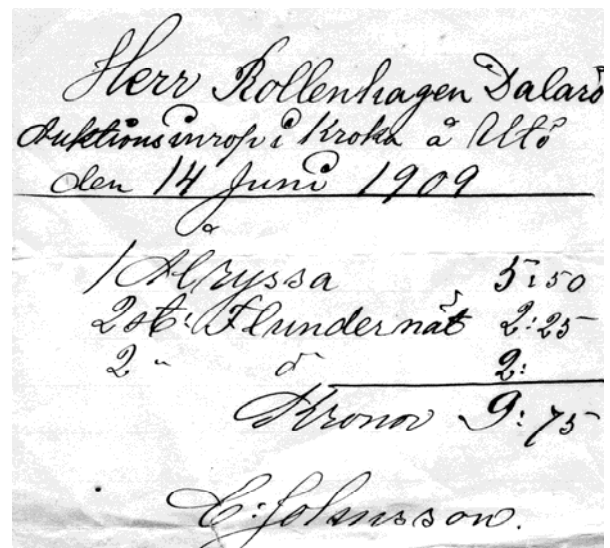 Herr Rollenhagen Dalarö
Auktionsinrop i Kroka å Utö
den 14 Juni 1909
1 Ålryssa 5:50
2 st: Flundernät 2:25
2 " d 2:
Kronor 9:75
E: Johnsson.